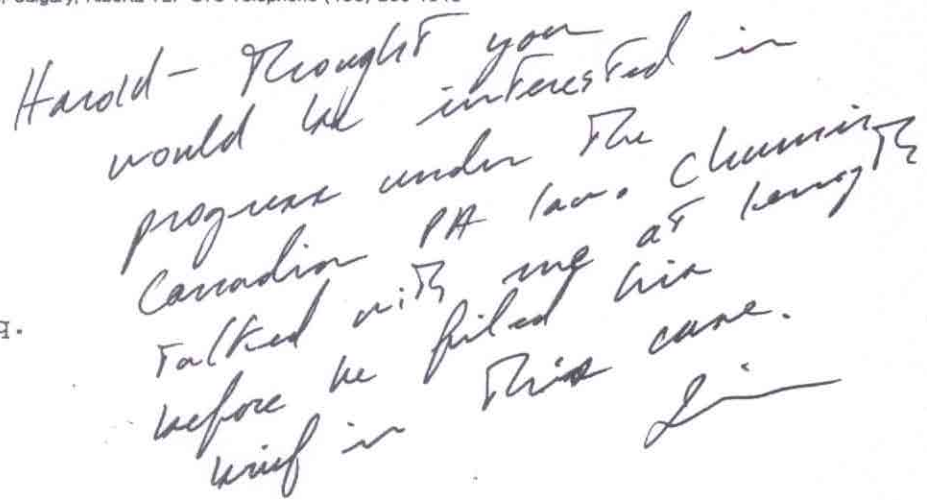 Calgary, Alberta T2P Telephone (403)
Harold - Thought you
would be interested in
progress under the
Canadian PA law. Chumir
talked with me at length
before he filed his
brief in this case.
Jim